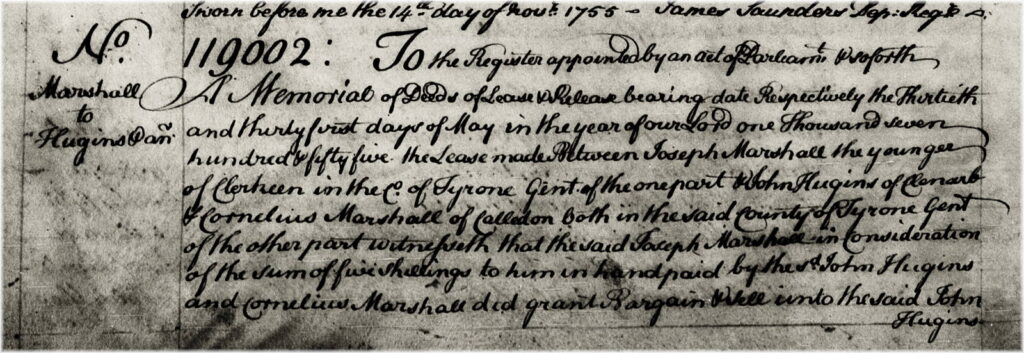 Sworn before me the 14th day of Novr. 1755 - James Saunders Dep: Regr
No. 119002: To the Register appointed by an act of Parliamt. & so forth
Marshall
to
Hugins & anr.
A Memorial of Deeds of Lease & Release bearing date Respectively the Thirtieth
and thirty first days of May in the year of our Lord one Thousand seven
hundred & fifty five. the Lease made Between Joseph Marshall the younger
of Clerkeen in the Co. of Tyrone Gent. of the one part & John Hugins of Clenarb
& Cornelius Marshall of Calledon both in the said County of Tyrone Gent
of the other part witnesseth that the said Joseph Marshall in Consideration
of the sum of five shillings to him in hand paid by the sd. John Hugins
and Cornelius Marshall did grant Bargain & sell unto the said John
Hugins